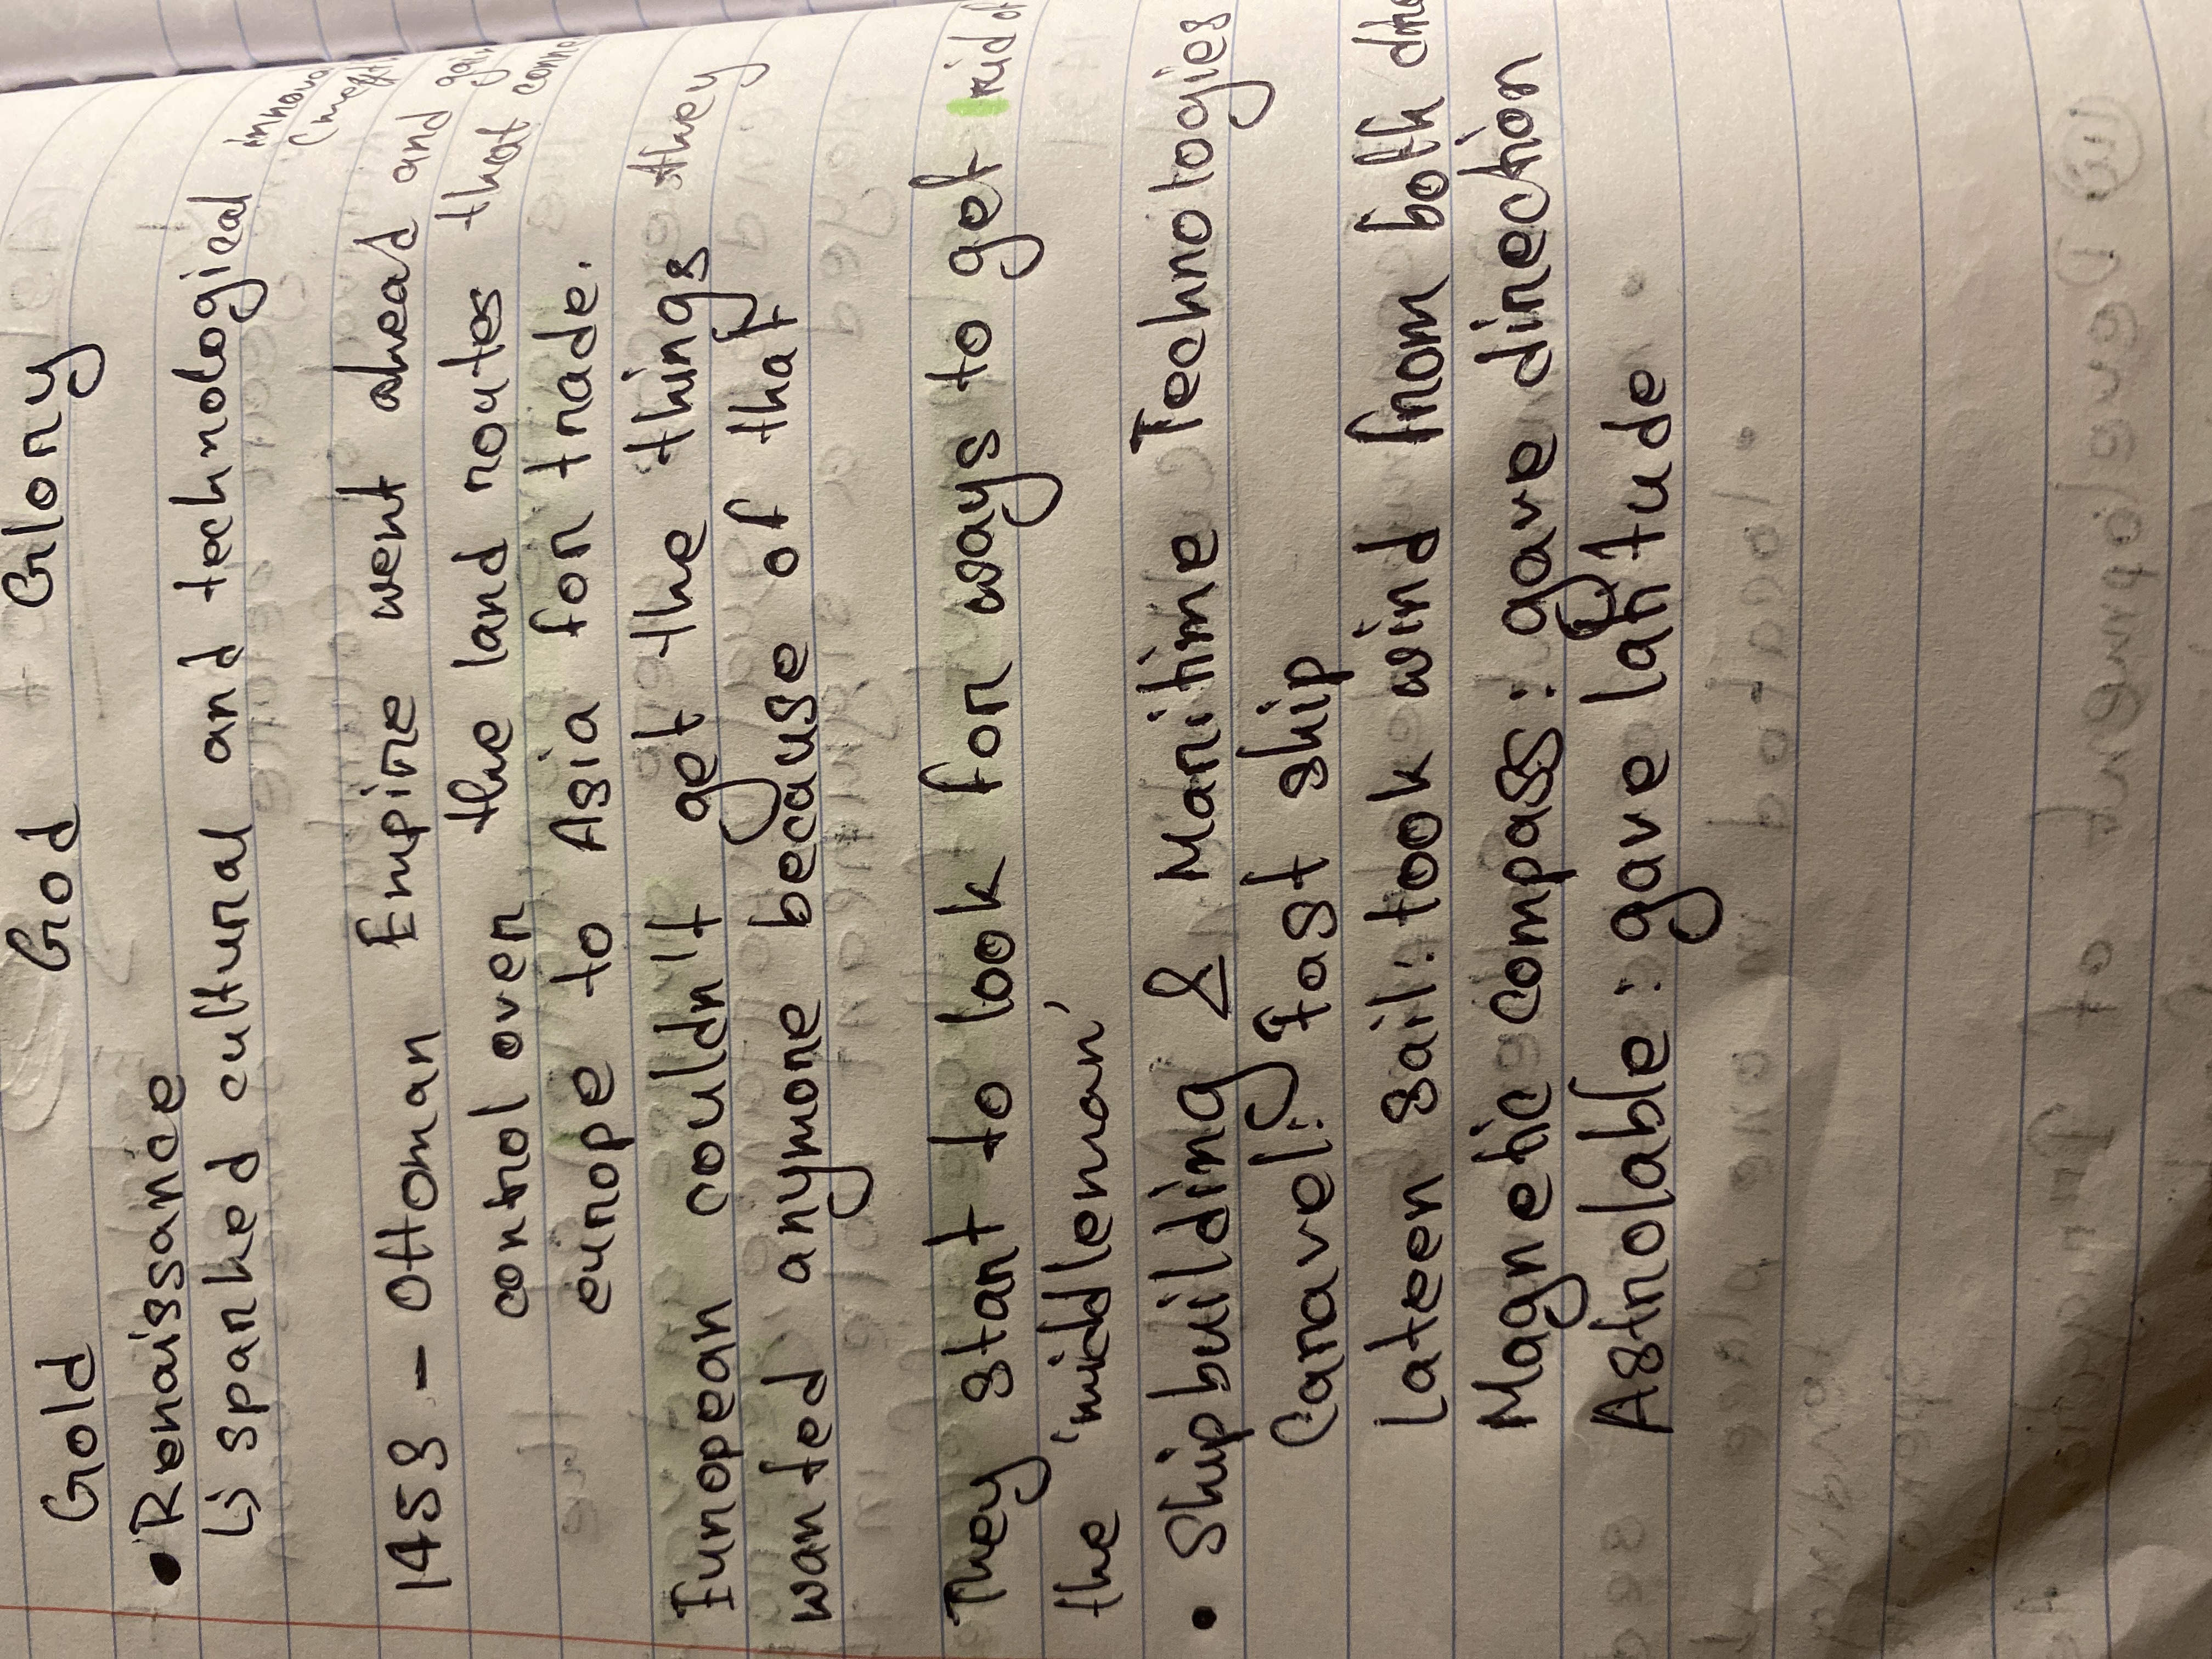 Gold God Glory
• Renaissance
↳ sparked cultural and technological
1453 - Ottoman Empire went ahead and
control over the land routes that
europe to Asia for trade.
European couldn't get the things they
wanted anymore because of that
They start to look for ways to get rid of
the 'middleman'
• Shipbuilding & Maritime Technologies
Caravel: Fast ship
Lateen sail: took wind from both
Magnetic compass: gave direction
Astrolabe: gave latitude